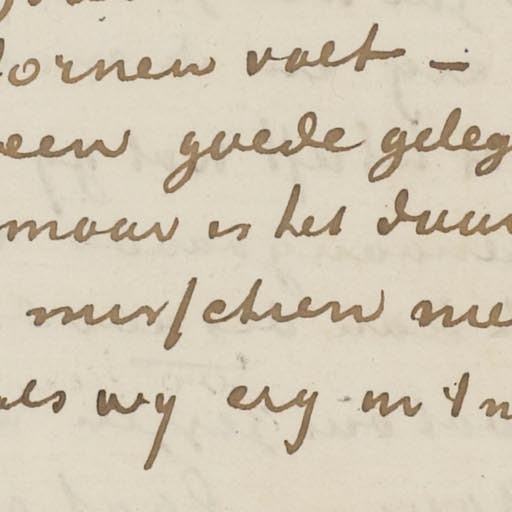 valt –
een goede geleg
maar is het duur
misschien me
als wy erg in